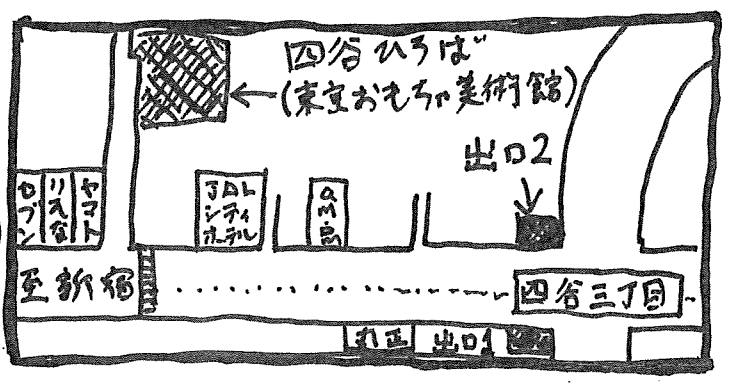 四谷ひろば
(東京おもちゃ美術館)
出口2
セブン
りそな
ヤマト
JAL
シティ
ホテル
am.pm
至新宿
四谷三丁目
丸正
出口1